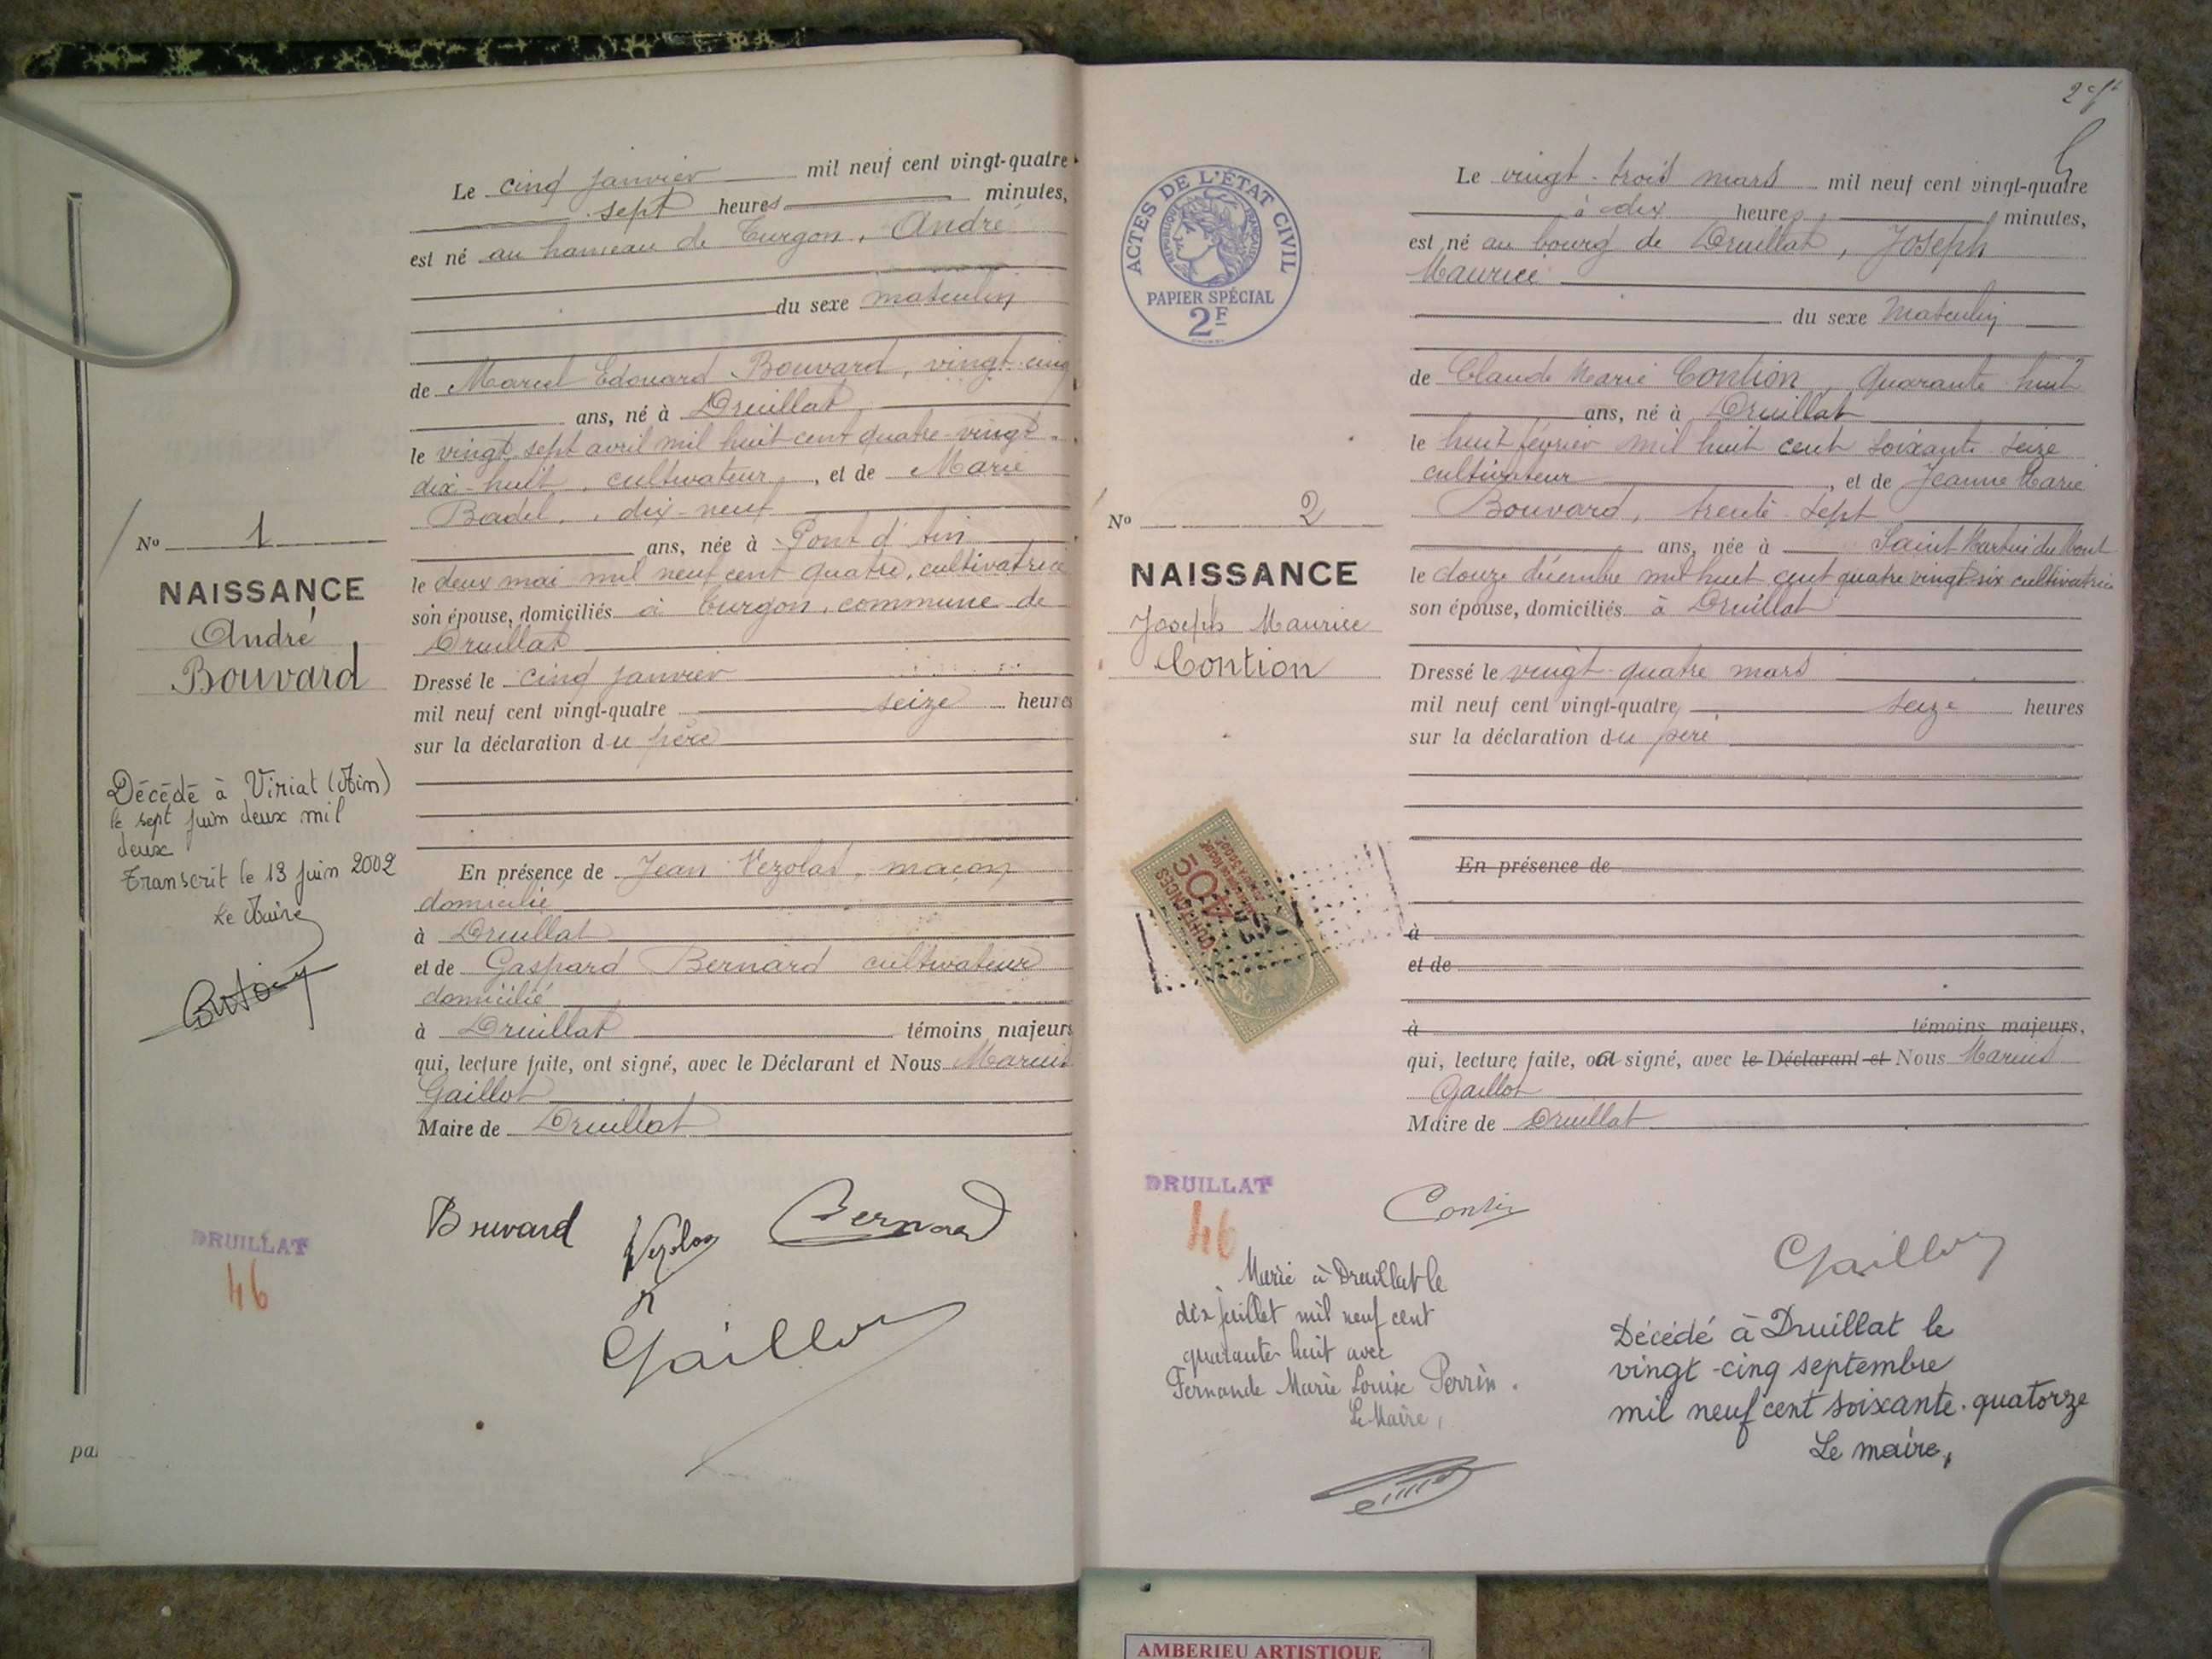 Le cinq janvier mil neuf cent vingt-quatre
sept heures minutes,
est né au hameau de Turgon, André
du sexe masculin
de Marcel Edouard Bouvard, vingt-cinq
ans, né à Druillat
le vingt sept avril mil huit cent quatre-vingt-
dix-huit, cultivateur, et de Marie
Badel, dix-neuf
ans, née à Pont d'Ain
le deux mai mil neuf cent quatre, cultivatrice
son épouse, domiciliés à Turgon, commune de
Druillat
Dressé le cinq janvier
mil neuf cent vingt-quatre seize heures
sur la déclaration du père
En présence de Jean Vezolas, maçon
domicilié
à Druillat
et de Gaspard Bernard cultivateur
domicilié
à Druillat témoins majeurs
qui, lecture faite, ont signé, avec le Déclarant et Nous Marius
Gaillot
Maire de Druillat
Nº 1
NAISSANCE
André
Bouvard
Décédé à Viriat (Ain)
le sept juin deux mil
deux
Transcrit le 13 juin 2002
Le Maire
DRUILLAT
46
Bouvard
Vezolas
Bernard
Gaillot
pa
2
ACTES DE L'ÉTAT CIVIL
RÉPUBLIQUE FRANÇAISE
PAPIER SPÉCIAL
2F
Le vingt-trois mars mil neuf cent vingt-quatre
à dix heures, minutes,
est né au bourg de Druillat, Joseph
Maurice
du sexe Masculin
de Claude Marie Contion, quarante huit
ans, né à Druillat
le huit février mil huit cent soixante seize
cultivateur, et de Jeanne Marie
Bouvard, trente-sept
ans, née à Saint Martin du Mont
le douze décembre mil huit cent quatre vingt six cultivatrice
son épouse, domiciliés à Druillat
Dressé le vingt-quatre mars
mil neuf cent vingt-quatre, seize heures
sur la déclaration du père
En présence de
à
et de
à témoins majeurs,
qui, lecture faite, a signé, avec le Déclarant et Nous Marius
Gaillot
Maire de Druillat
Nº 2
NAISSANCE
Joseph Maurice
Contion
QUITTANCES
40c
DRUILLAT
46
Contion
Gaillot
Marié à Druillat le
dix juillet mil neuf cent
quarante-huit avec
Fernande Marie Louise Perrin.
Le Maire,
Décédé à Druillat le
vingt-cinq septembre
mil neuf cent soixante-quatorze
Le maire,
AMBERIEU ARTISTIQUE